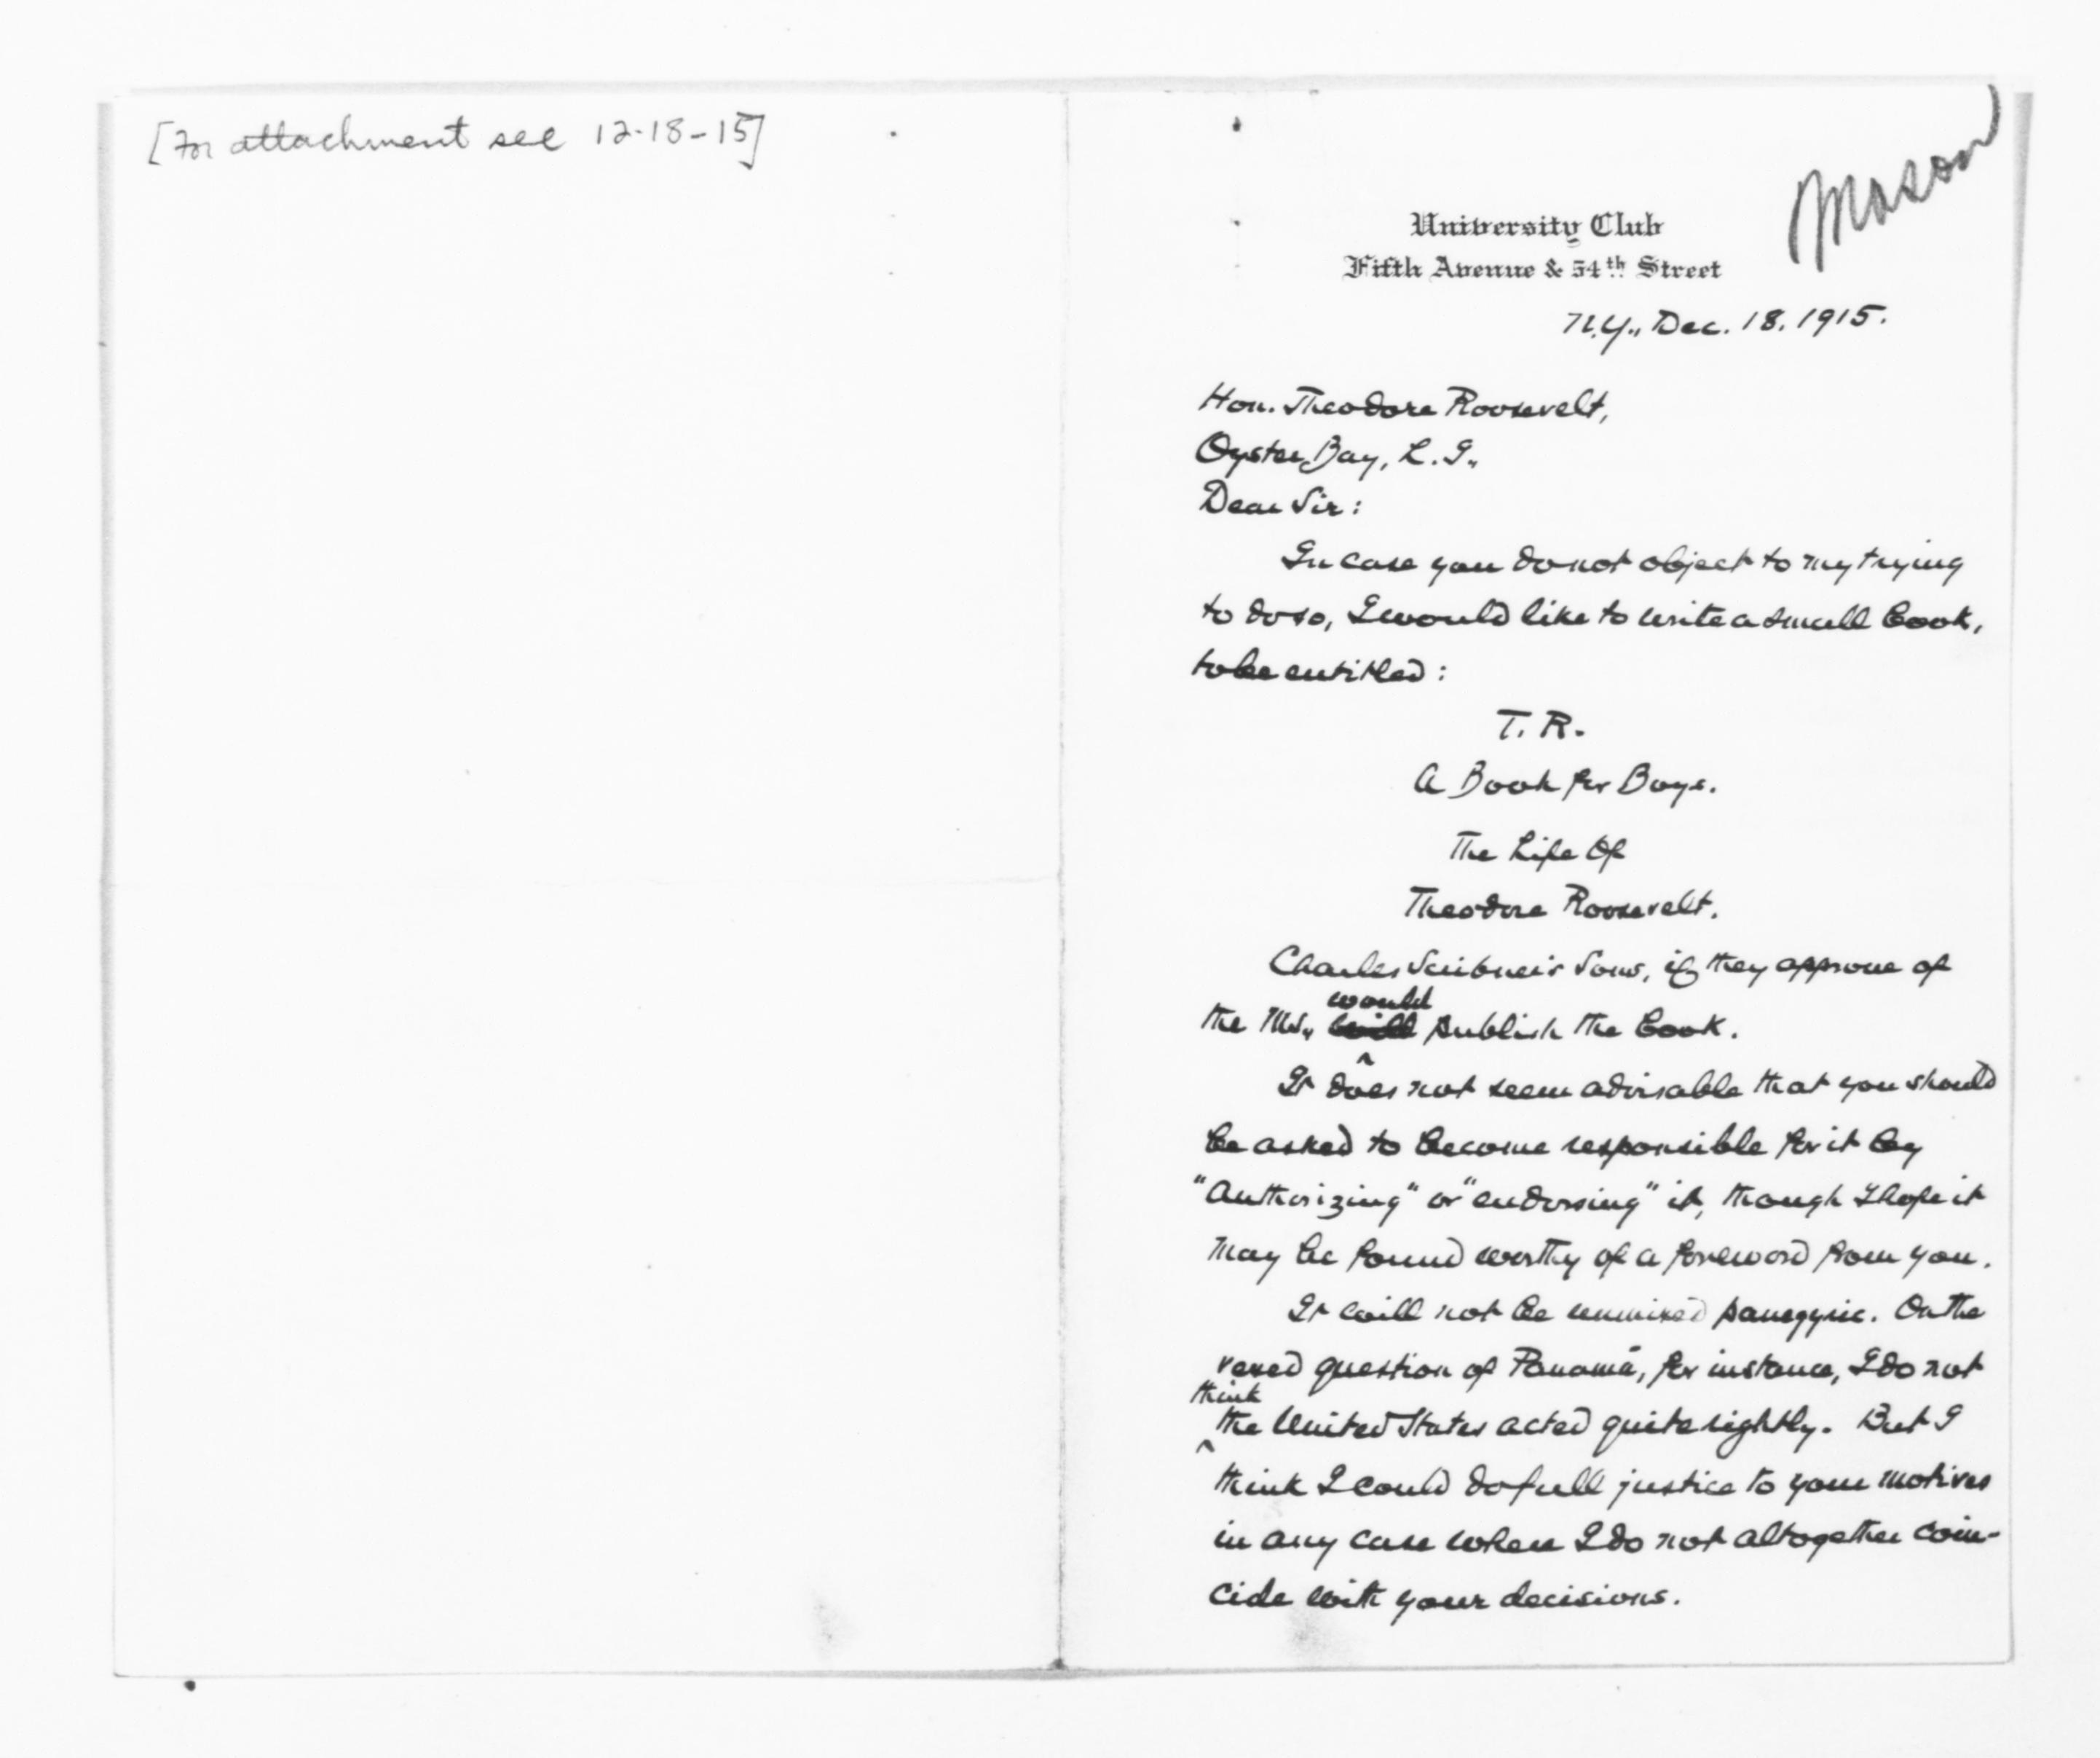 [For attachment see 12-18-15]
Mason
University Club
Fifth Avenue & 54th Street
N.Y., Dec. 18. 1915.
Hon. Theodore Roosevelt,
Oyster Bay, L. I.,
Dear Sir:
In case you do not object to my trying
to do so, I would like to write a small book,
to be entitled:
T. R.
A Book for Boys.
The Life Of
Theodore Roosevelt.
Charles Scribner's Sons, if they approve of
would
the Ms., will publish the book.
It does not seem advisable that you should
be asked to become responsible for it by
"Authorizing" or "endorsing" it, though I hope it
may be found worthy of a foreword from you.
It will not be unmixed panegyric. On the
vexed question of Panamá, for instance, I do not
think
the United States acted quite rightly. But I
think I could do full justice to your motives
in any case where I do not altogether coin-
cide with your decisions.